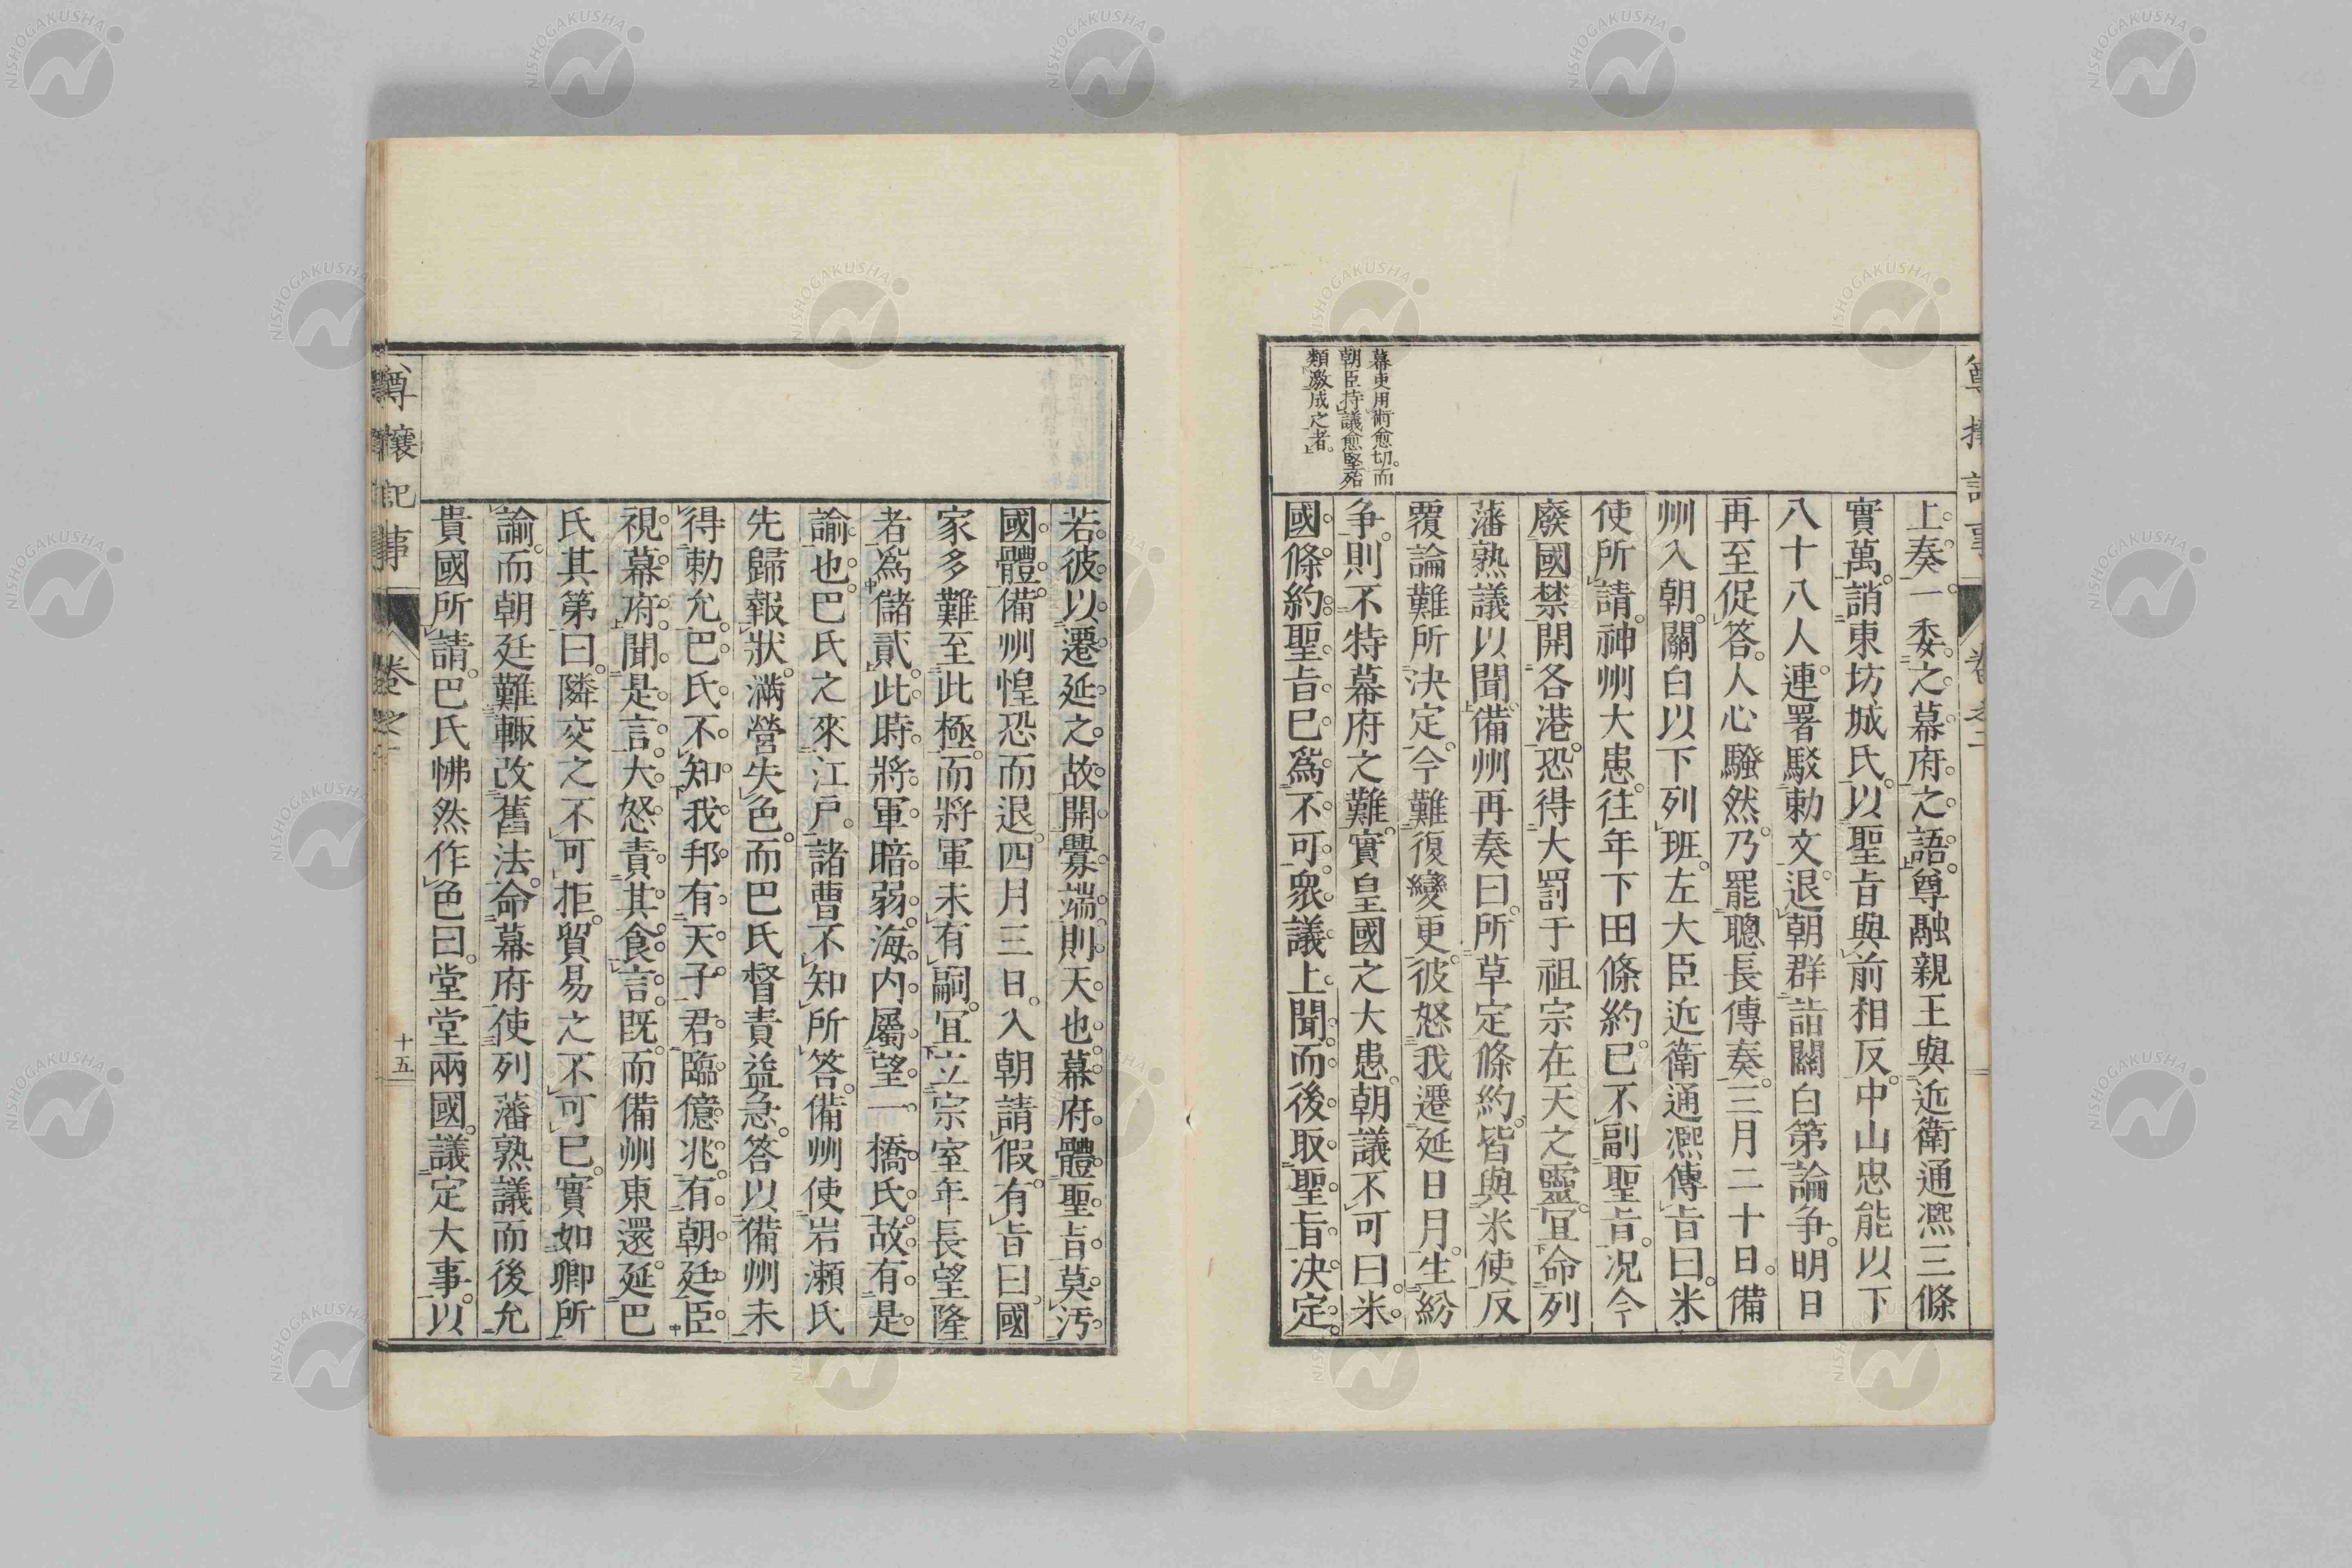 尊攘記事
卷之二
幕吏用術愈切。而
朝臣持議愈堅。殆
類激成之者。
上奏。一委之幕府之語。尊融親王與近衛通凞三條
實萬。誚東坊城氏。以聖旨與前相反。中山忠能以下
八十八人。連署駁勅文。退朝群詣關白第論爭。明日
再至促答。人心騷然。乃罷聰長傳奏。三月二十日。備
州入朝。關白以下列班。左大臣近衛通凞傳旨曰。米
使所請。神州大患。往年下田條約。已不副聖旨。況今
廢國禁開各港。恐得大罰于祖宗在天之靈。宜命列
藩熟議以聞。備州再奏曰。所草定條約。皆與米使反
覆論難所决定。今難復變更。彼怒我遷延日月。生紛
争。則不特幕府之難。實皇國之大患。朝議不可曰。米
國條約。聖旨已爲不可。衆議上聞。而後取聖旨决定。
若彼以遷延之故。開釁端。則天也。幕府體聖旨。莫汚
國體。備州惶恐而退。四月三日。入朝請假。有旨曰。國
家多難至此極。而將軍未有嗣。宜立宗室年長望隆
者爲儲貳。此時將軍暗弱。海内屬望一橋氏。故有是
諭也。巴氏之來江戸。諸曹不知所答。備州使岩瀬氏
先歸報狀。滿營失色。而巴氏督責益急。答以備州未
得勅允。巴氏不知我邦有天子君臨億兆。有朝廷臣
視幕府。聞是言。大怒責其食言。既而備州東還。延巴
氏其第曰。隣交之不可拒。貿易之不可已。實如卿所
諭。而朝廷難輙改舊法。命幕府使列藩熟議而後允
貴國所請。巴氏怫然作色曰。堂堂兩國。議定大事。以
尊攘記事
卷之二
十五